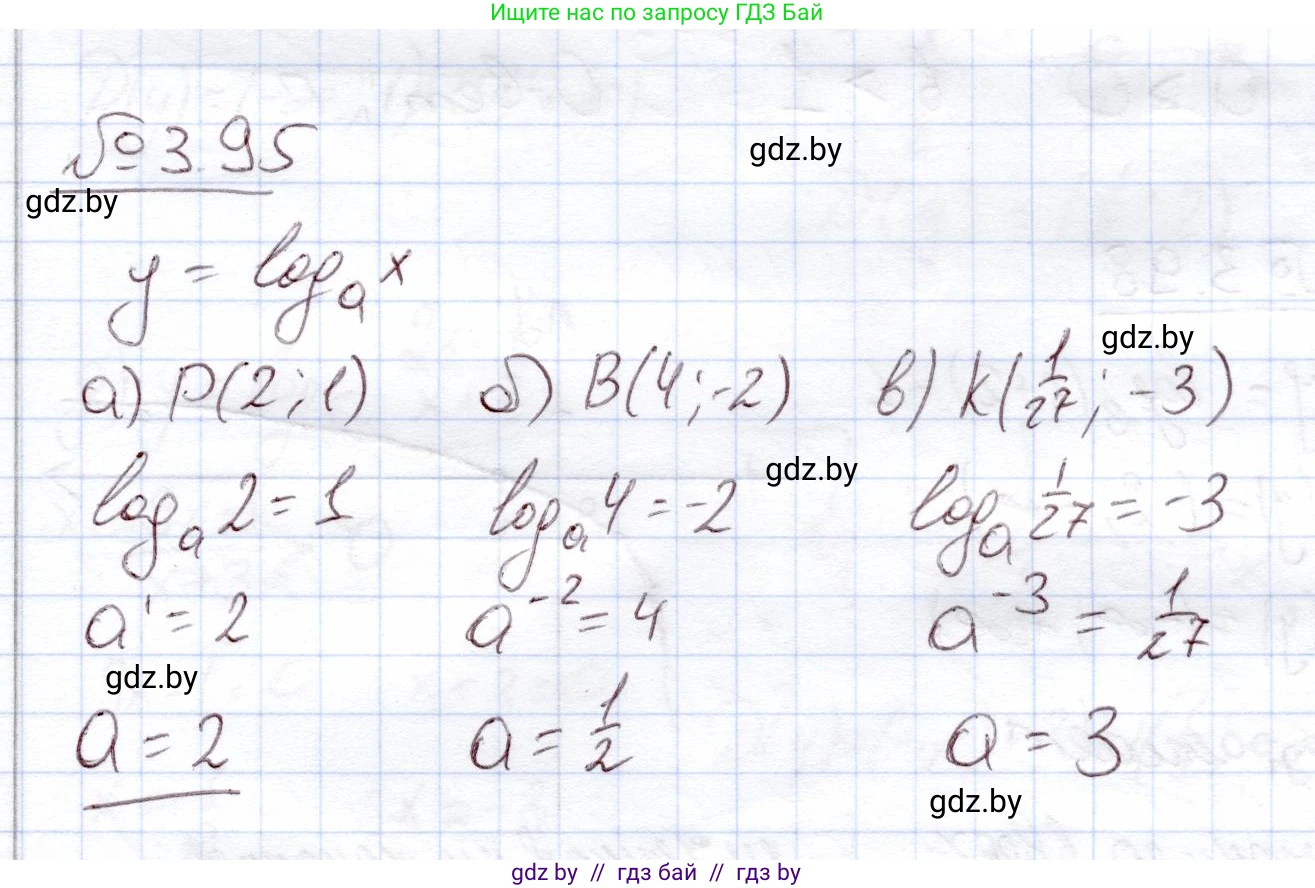 Ищите нас по запросу ГДЗ Бай
№ 3.95
gdz.by
gdz.by
y = logₐ x
gdz.by
а) P(2; 1) б) B(4; -2) в) K(1/27; -3)
gdz.by
logₐ 2 = 1 logₐ 4 = -2 logₐ 1/27 = -3
a¹ = 2 a⁻² = 4 a⁻³ = 1/27
gdz.by
a = 2 a = 1/2 a = 3
gdz.by
gdz by // гдз бай // гдз by